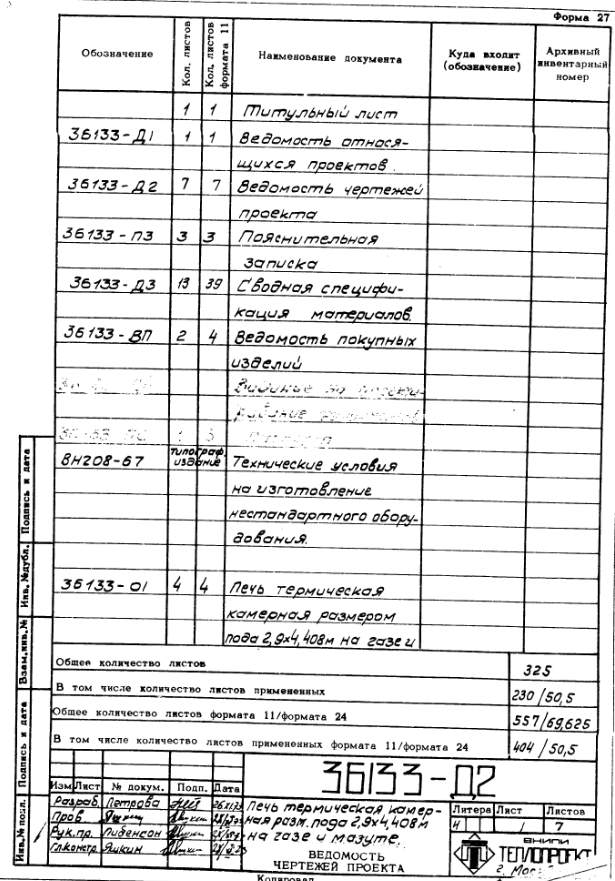 Форма 27
Обозначение
Кол. листов
Кол. листов формата 11
Наименование документа
Куда входит
(обозначение)
Архивный
инвентарный
номер
1 1 Титульный лист
36133-Д1 1 1 Ведомость относя-
щихся проектов.
36133-Д2 7 7 Ведомость чертежей
проекта
36133-ПЗ 3 3 Пояснительная
записка
36133-Д3 13 39 Сводная специфи-
кация материалов.
36133-ВП 2 4 Ведомость покупных
изделий
ВН208-67 типограф. издание Технические условия
на изготовление
нестандартного обору-
дования.
36133-01 4 4 Печь термическая
камерная размером
пода 2,9х4,408м на газе и
Общее количество листов 325
В том числе количество листов примененных 230/50,5
Общее количество листов формата 11/формата 24 557/69,625
В том числе количество листов примененных формата 11/формата 24 404/50,5
Подпись и дата
Инв. №дубл.
Взам.инв.№
Подпись и дата
Инв.№ подл.
36133-Д2
Изм Лист № докум. Подп. Дата
Разраб. Петрова
Пров.
Рук.пр. Либенсон
Гл.констр. Яшкин
Печь термическая камер-
ная разм. пода 2,9х4,408м
на газе и мазуте.
ВЕДОМОСТЬ
ЧЕРТЕЖЕЙ ПРОЕКТА
Литера Лист Листов
И 1 7
ВНИПИ
ТЕПЛОПРОЕКТ
Копировал